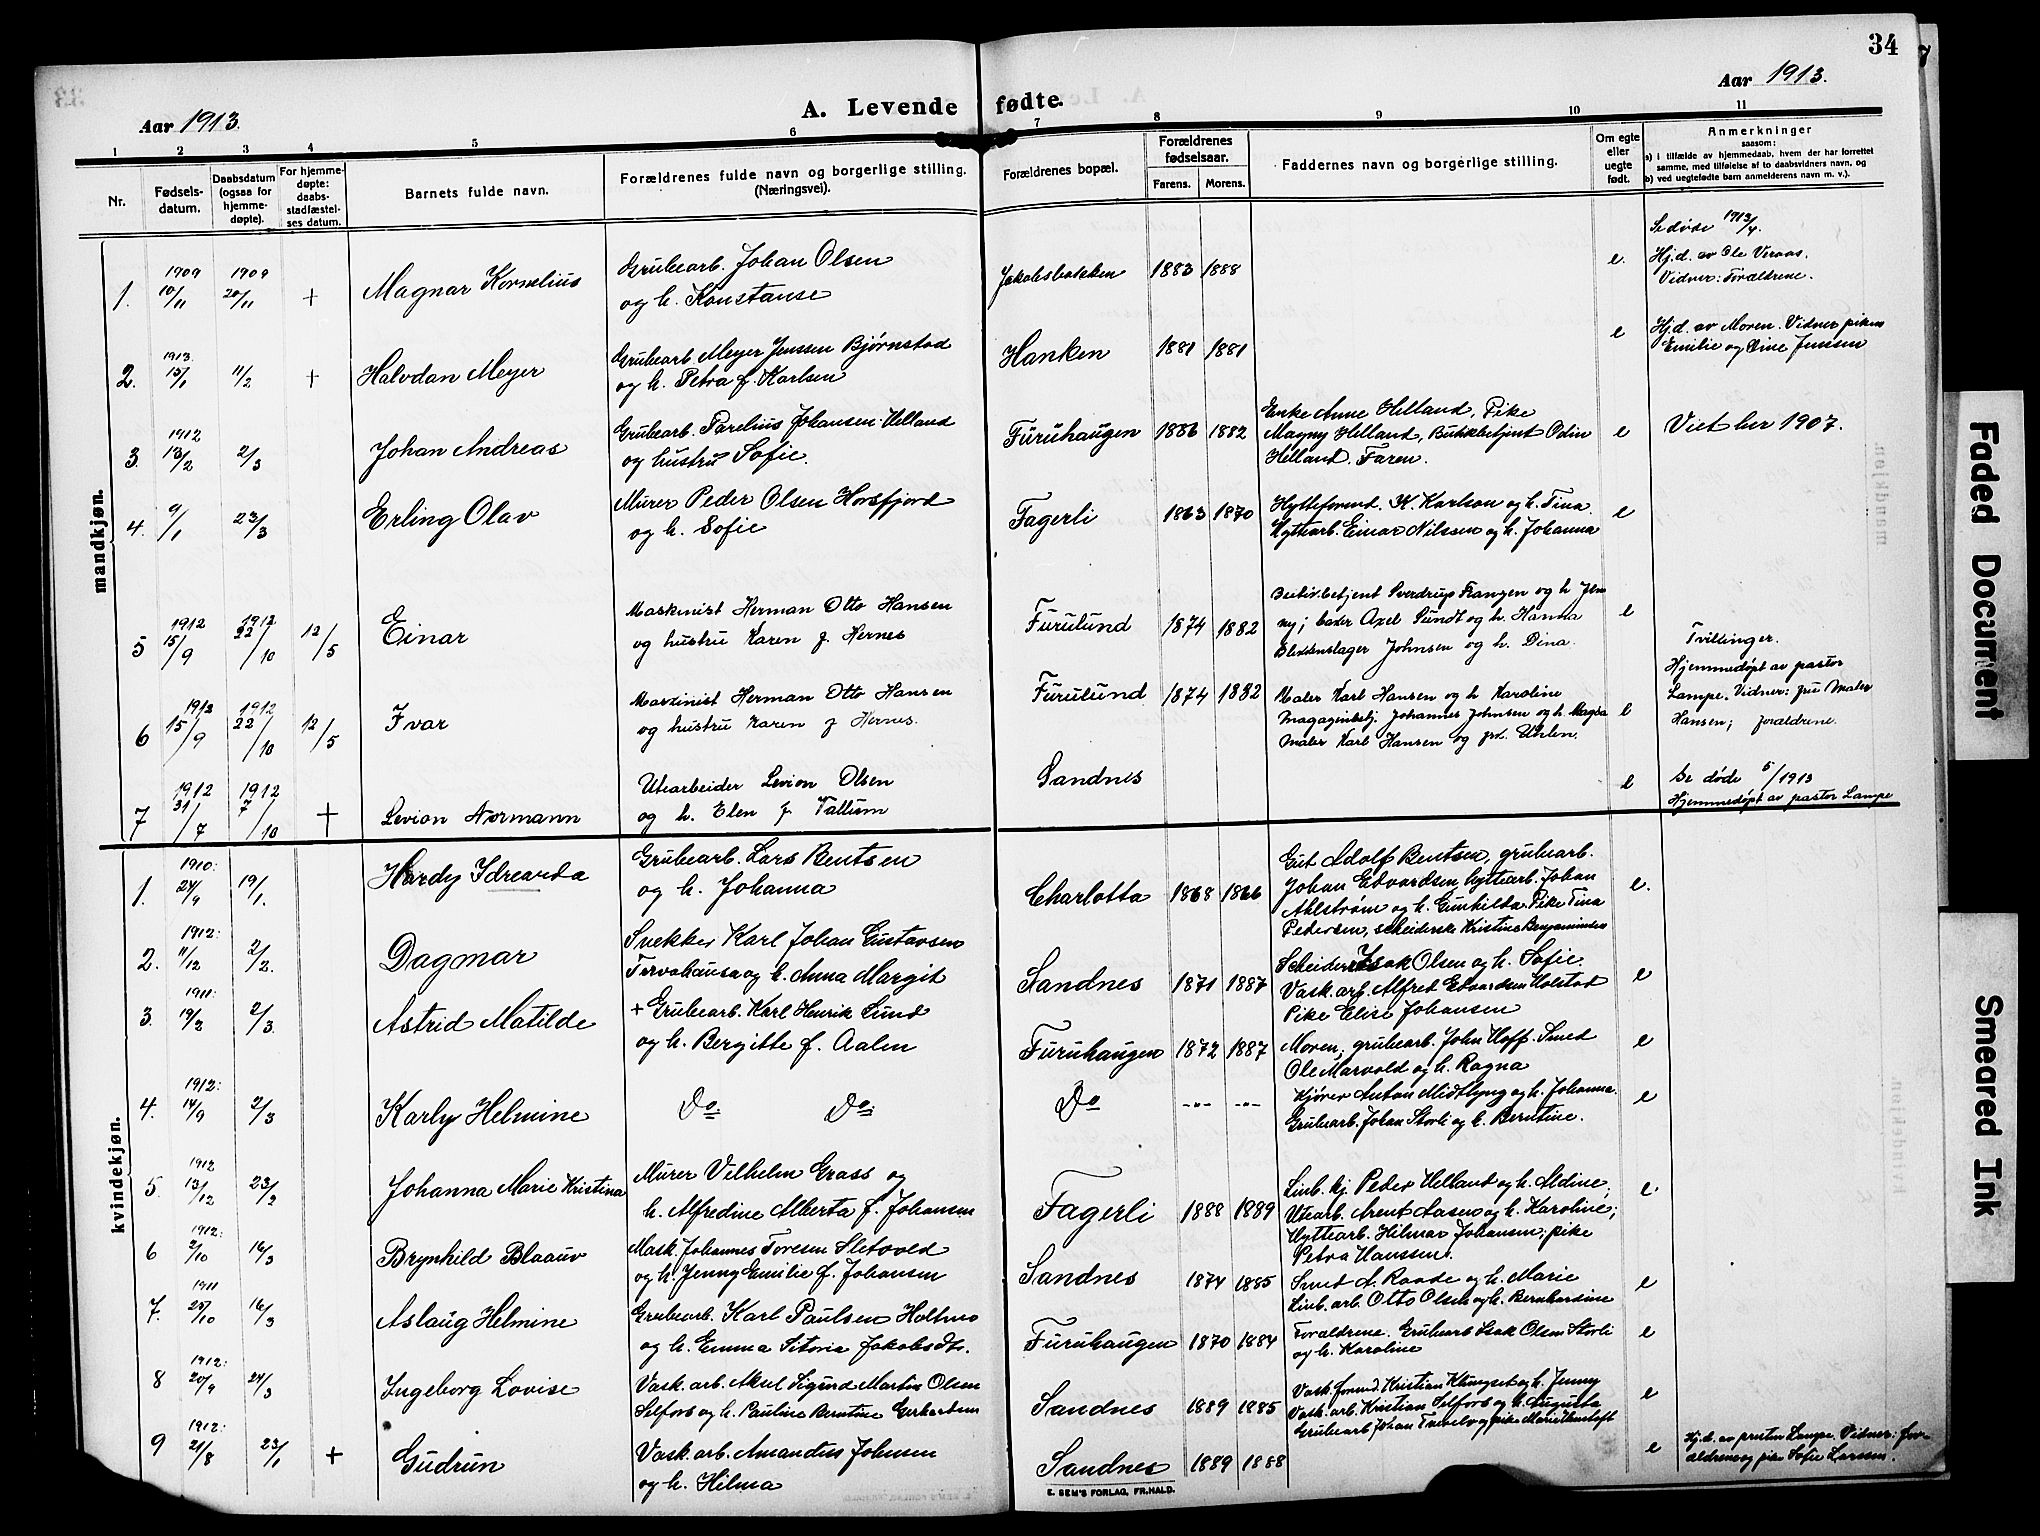 34
Aar 1913.
A. Levende fødte.
Aar 1913.
1 2 3 4 5 6 7 8 9 10 11
Nr.
Fødsels-
datum.
Daabsdatum
(ogsaa for
hjemme-
døpte).
For hjemme-
døpte:
daabs-
stadfæstel-
ses datum.
Barnets fulde navn.
Forældrenes fulde navn og borgerlige stilling.
(Næringsvei).
Forældrenes bopæl.
Forældrenes
fødselsaar.
Farens. Morens.
Faddernes navn og borgerlige stilling.
Om egte
eller
uegte
født.
Anmerkninger
saasom:
a) i tilfælde av hjemmedaab, hvem der har forrettet
samme, med tilføielse af to daabsvidners navn, og
b) ved uegtefødte barn anmelderens navn m. v.).
mandkjøn.
1. 1909 10/11 1909 20/11 + Magnar Kornelius
Grubearb. Johan Olsen
og h. Konstanse
Jakobsbakken 1883 1888 e.
Se døde 1913/4.
Hj.d. av Ole Veraas.
Vidner: Forældrene.
2. 1913. 15/1 11/2 + Halvdan Meyer
Grubearb Meyer Jenssen Bjørnstad
og h. Petra f. Karlsen
Hanken 1881 1881 e
Hj.d. av Moren. Vidner piken
Emilie og Jenssen
3. 1912 13/2 2/3 Johan Andreas
Grubearb. Parelius Johansen Helland
og hustru Sofie.
Furuhaugen 1886 1882
Enke Anne Helland, Pike
Magny Helland, Butikbetjent Odin
Helland. Faren.
e Viet her 1907.
4. 9/1 23/3 Erling Olav
Murer Peder Olsen Horsfjord
og h. Sofie
Fagerli 1863 1870
Hytteformd. K. Karlson og h. Tina
Hyttearb. Einar Nilssen og h. Johanna
e
5 1912 15/9 1912 22/10 12/5 Einar
Maskinist Herman Otto Hansen
og hustru Karen f. Hernes
Furulund 1874 1882
Sverdrup Frangen og h Jen
ny; baker Axel Sundt og h. Hanna
Blikkenslager Johnsen og h. Dina.
e
Tvillinger.
Hjemmedøpt av pastor
Lampe. Vidner: fru Maler
Hansen; forældrene.
6 1912 15/9 1912 22/10 12/5 Ivar
Maskinist Herman Otto Hansen
og hustru Karen f Hernes.
Furulund 1874 1882
Maler Karl Hansen og h Karoline
Magasinbetj. Johannes Johnsen og h. Magda
Maler Karl Hansen og frk. Uhlen.
e
7 1912 31/7 1912 7/10 + Levion Normann
Utearbeider Levion Olsen
og h. Elen f. Vallum
Sandnes e
Se døde 5/1913
Hjemmedøpt av pastor Lampe
kvindekjøn.
1. 1910: 24/9 19/1. Hardy Idrearda
Grubearb. Lars Bentsen
og h. Johanna
Charlotta 1868 1866
Gut Adolf Bentsen, grubearb.
Johan Edvardsen hyttearb. Johan
Ahlstrøm og h. Gunhilda Pike Tina
Pedersen, scheiderske Kristine Benjaminsen
e.
2. 1912: 11/12 2/2. Dagmar
Snekker Karl Johan Gustavsen
Tervahausa og h. Anna Margit
Sandnes 1871 1887
Scheider Isak Olsen og h. Sofie.
Vask. arb. Alfred Edvardsen Holstad
Pike Elise Johansen
e
3. 1911: 19/3 2/3. Astrid Matilde
+ Grubearb. Karl Henrik Lund
og h. Bergitte f. Aalen
Furuhaugen 1872 1887
Moren; grubearb. John Hoff. Smed
Ole Marvold og h. Ragna
e
4. 1912: 14/9 2/3 Karly Helmine
Do Do
Do -"- -"-
Kjører Anton Midtlyng og h. Johanna.
Grubearb. Johan Storli og h. Berntine.
e
5. 1912 13/12 23/2 Johanna Marie Kristina
Murer Vilhelm Grass og
h. Alfredine Alberta f. Johansen
Fagerli 1888 1889
Linb. kj. Peder Helland og h. Aldine;
Utearb. Arent Aasen og h. Karoline;
Hyttearb. Hilmar Johansen; pike
Petra Hanssen.
e
6 1912: 2/10 16/3 Brynhild Blaauw
Mask. Johannes Toresen Sletvold
og h. Jenny Emilie f. Johansen
Sandnes 1874 1885
Smed A. Raade og h. Marie
Linb. arb. Otto Olsen og h. Bernhardine
e
7. 1911 25/10 16/3 Aslaug Helmine
Grubearb. Karl Paulsen Holtmo
og h. Emma Sitoria Jakobsdtr.
Furuhaugen 1870 1884
Forældrene. Grubearb Isak Olsen Storli
og h. Karoline
e
8 1912: 20/9 24/3 Ingeborg Lovise
Vask. arb. Aksel Sigurd Martin Olsen
Selfors og h. Pauline Berntine Gerhardsen
Sandnes 1889 1885
Vask. formd. Kristian Klungset og h. Jenny
Vask. arb. Kristian Selfors og h. Augusta
Grubearb Johan og pike Marie
e
9 1912: 21/8 23/1 + Gudrun
Vask. arb. Amandus Johnsen
og h. Hilma
Sandnes 1889 1888 e
Hj.d. av presten Lampe. Vidner: for-
ældrene og pike Sofie Larssen.
E. SEM'S FORLAG, FR.HALD.
Faded Document
Smeared Ink